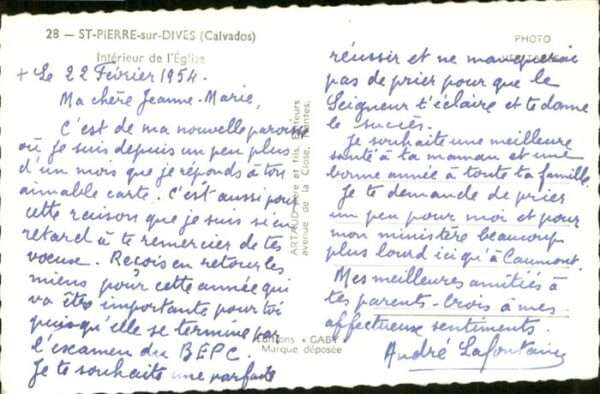 28 — ST-PIERRE-sur-DIVES (Calvados)
Intérieur de l'Église
PHOTO
+ Le 22 Février 1954.
Ma chère Jeanne-Marie,
C'est de ma nouvelle paroisse
où je suis depuis un peu plus
d'un mois que je réponds à ton
aimable carte. C'est aussi pour
cette raison que je suis si en
retard à te remercier de tes
voeux. Reçois en retour les
miens pour cette année qui
va être importante pour toi
puisqu'elle se termine par
l'examen du BEPC.
Je te souhaite une parfaite
ARTAUD père et fils, Éditeurs
avenue de la Close, Nantes.
Éditions • GABY
Marque déposée
réussir et ne manquerai
pas de prier pour que le
Seigneur t'éclaire et te donne
le succès.
Je souhaite une meilleure
santé à ta maman et une
bonne année à toute ta famille.
Je te demande de prier
un peu pour moi et pour
mon ministère beaucoup
plus lourd ici qu'à Caumont.
Mes meilleures amitiés à
tes parents. Crois à mes
affectueux sentiments.
André Lafontaine